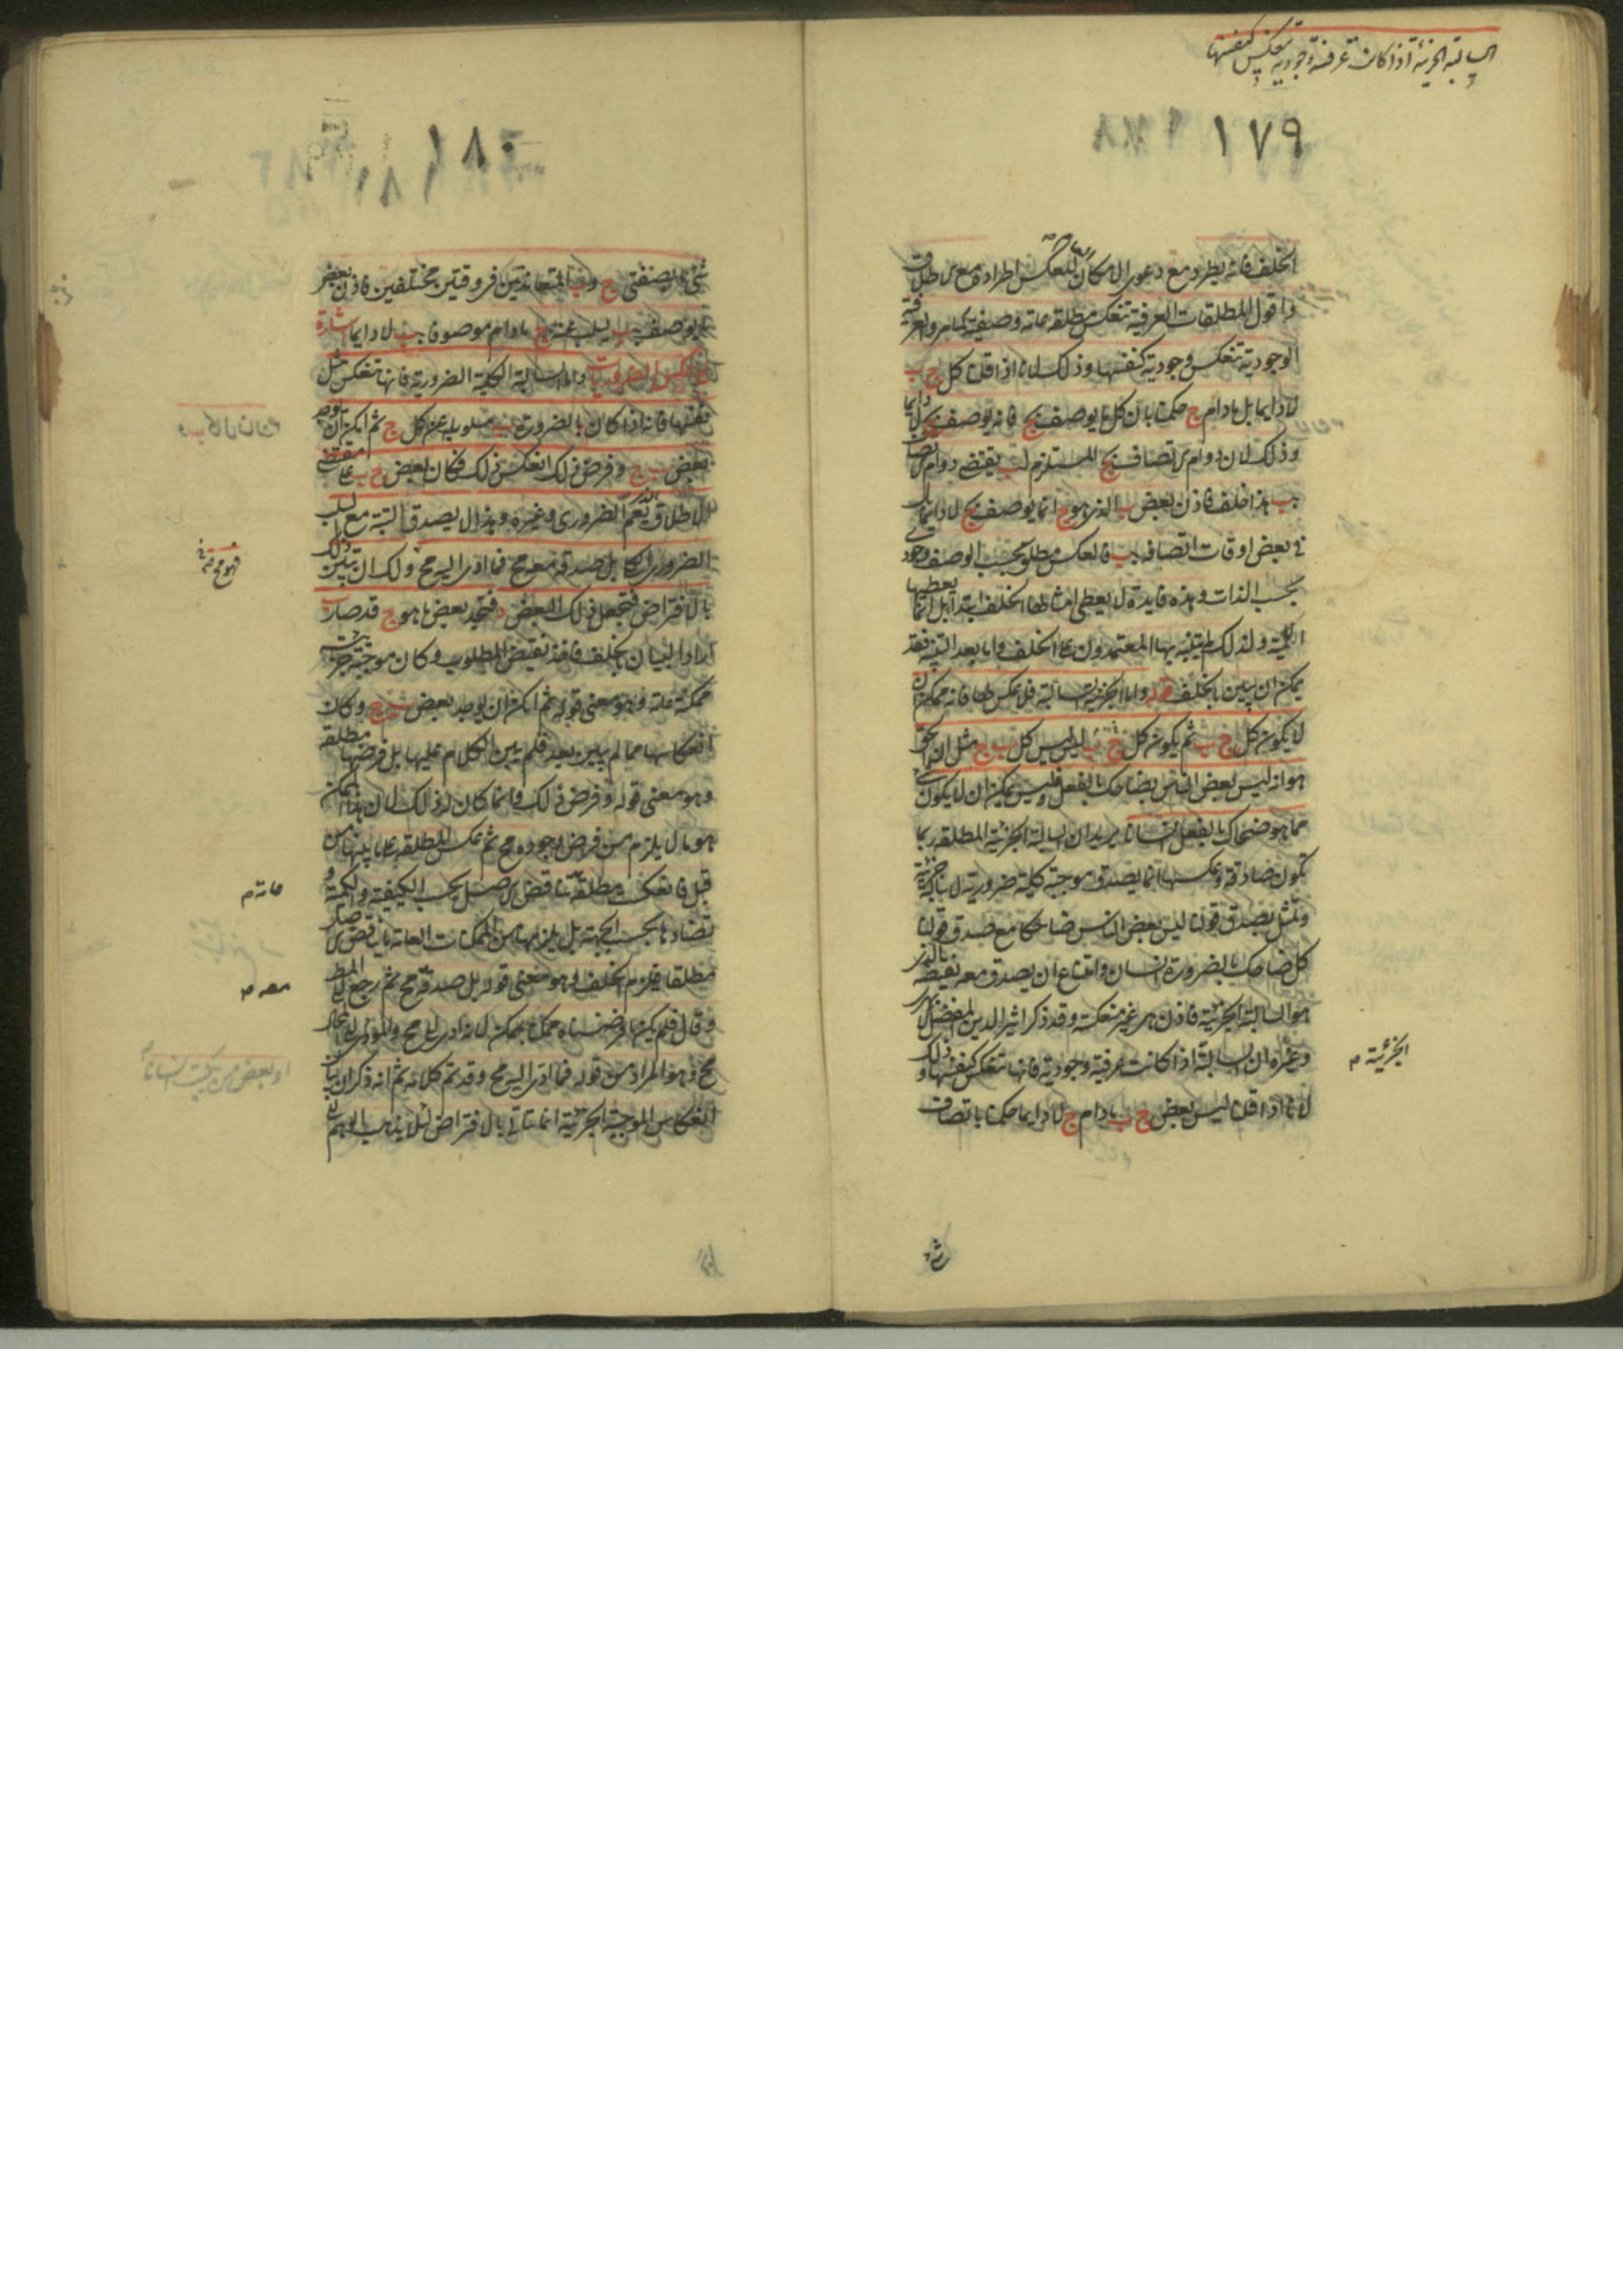 السالبة الجزئية اذا كانت عرفية وجودية تنعكس كنفسها
١٧٩
الخلف فانه يطرد مع دعوى الامكان العام للعكس اطراده مع الاطلاق
واقول المطلقات العرفية تنعكس مطلقة عامة وصفية كما مر والعرفية
الوجودية تنعكس وجودية كنفسها وذلك لانا اذا قلنا كل ج ب
لا دايما بل مادام ج حكمنا بان كل ما يوصف بج فانه يوصف بج لا دايما
وذلك لان دوام الاتصاف بج المستلزم لب يقتضى دوام الاتصاف
بب هذا خلف فاذن بعض ب الذى هو ج انما يوصف بج لا دايما بل
فى بعض اوقات اتصافه بب فالعكس مطلق بحسب الوصف وجودى
بحسب الذات وهذه فايدة لا يعطى امثالها الخلف ابتداء بل انما يعطيها
اللمية ولذلك لم يتنبه بها المعتمدون على الخلف واما بعد التنبه فقد
يمكن ان يبين بالخلف قوله واما الجزئية السالبة فلا عكس لها فانه يمكن ان
لا يكون كل ج ب ثم يكون كل ب ج ليس كل ب ج مثل ان الحق
هو انه ليس بعض الناس بضاحك بالفعل وليس يمكن ان لا يكون شئ
مما هو ضحاك بالفعل انسانا يريد ان السالبة الجزئية المطلقة ربما
تكون صادقة وعكسها انما يصدق موجبة كلية ضرورية لا سالبة جزئية
وتمثل بصدق قولنا ليس بعض الناس ضاحكا مع صدق قولنا
كل ضاحك بالضرورة انسان وامتناع ان يصدق معه نقيضه الذى
هو السالبة الجزئية فاذن هى غير منعكسة وقد ذكر اثير الدين المفضل الابهرى
وغيره ان السالبة اذا كانت عرفية وجودية فانها تنعكس كنفسها وذلك
الجزئية م
لانا اذا قلنا ليس بعض ج ب مادام ج لا دايما حكمنا باتصاف
١٨٠
شئ ما بصفتى ج وب المتعاندتين فى وقتين مختلفين فاذن بعض
ما يوصف بب يسلب عنه ج مادام موصوفا بب لا دايما اشارة
الى عكس الضروريات واما السالبة الكلية الضرورية فانها تنعكس مثل
نفسها فانه اذا كان بالضرورة ب مسلوبا عن كل ج ثم امكن ان يوجد
بعض ب ج وفرض ذلك انعكس ذلك فكان بعض ج ب على مقتضى
الاطلاق الذى يعم الضرورى وغيره وهذا لا يصدق البتة مع السلب
الضرورى الكلى بل صدقه معه مح فما ادى اليه مح ولك ان تبين ذلك
بالافتراض فتجعل ذلك البعض د فتجد بعض ما هو ج قد صار ب
اراد البيان بالخلف فاخذ نقيض المطلوب وكان موجبة جزئية
ممكنة عامة وهو معنى قوله ثم امكن ان يوجد بعض ب ج وكان
انعكاسها مما لم يبين بعد فلم يبين الكلام عليها بل فرضها مطلقة
وهو معنى قوله وفرض ذلك وانما كان له ذلك لان الممكن
هو ما لا يلزم من فرض وجوده مح ثم عكس المطلقة على ما بينها من
قبل فانعكست مطلقة تناقض الاصل بحسب الكيفية والكمية و
عامة م
تضادها بحسب الجهة بل يلزمها من الممكنات العامة ما يناقض الاصل
مطلقا فلزم الخلف وهو معنى قوله بل صدقه مح ثم رجع الى المط
معه م
وقال فلم يكن ما فرضناه ممكنا بممكن لانه ادى الى مح والمؤدى الى المحال
مح وهو المراد من قوله فما ادى اليه مح وقد تم كلامه ثم انه ذكر ان بيان
انعكاس الموجبة الجزئية انما يتاتى بالافتراض لئلا يذهب الوهم